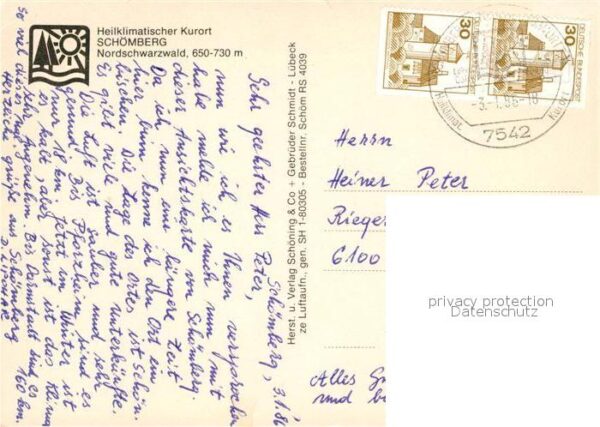 Heilklimatischer Kurort
SCHÖMBERG
Nordschwarzwald, 650-730 m
Schömberg, 3.1.86
Sehr geehrter Herr Peter,
nun wie ich es Ihnen versprochen
habe melde ich mich nun mit
dieser Ansichtskarte von Schömberg.
Da ich nun eine längere Zeit
hier bin kenne ich den Ort ein
bischen. Die Lage des Ortes ist Schön.
Es gibt viele und gute unterkünfte.
Die Luft ist sauber und sehr
gesund! Bis Pforzheim sind es
nur 18 km. Jetzt im Winter ist es
zwar kalt aber sonst ist das Klima
sehr Angenehm. Bis Darmstadt sind es 160 km.
So viel dieses mal
Herzliche grüße aus Schömberg
Herst. u. Verlag Schöning & Co + Gebrüder Schmidt - Lübeck
ze Luftaufn., gen. SH 1-80305 - Bestellnr. Schöm RS 4039
30
DEUTSCHE BUNDESPOST
30
DEUTSCHE BUNDESPOST
-3.-1.86-16
Heilklimat.
Kurort
7542
Herrn
Heiner Peter
Rieger
6100
privacy protection
Datenschutz
Alles
und